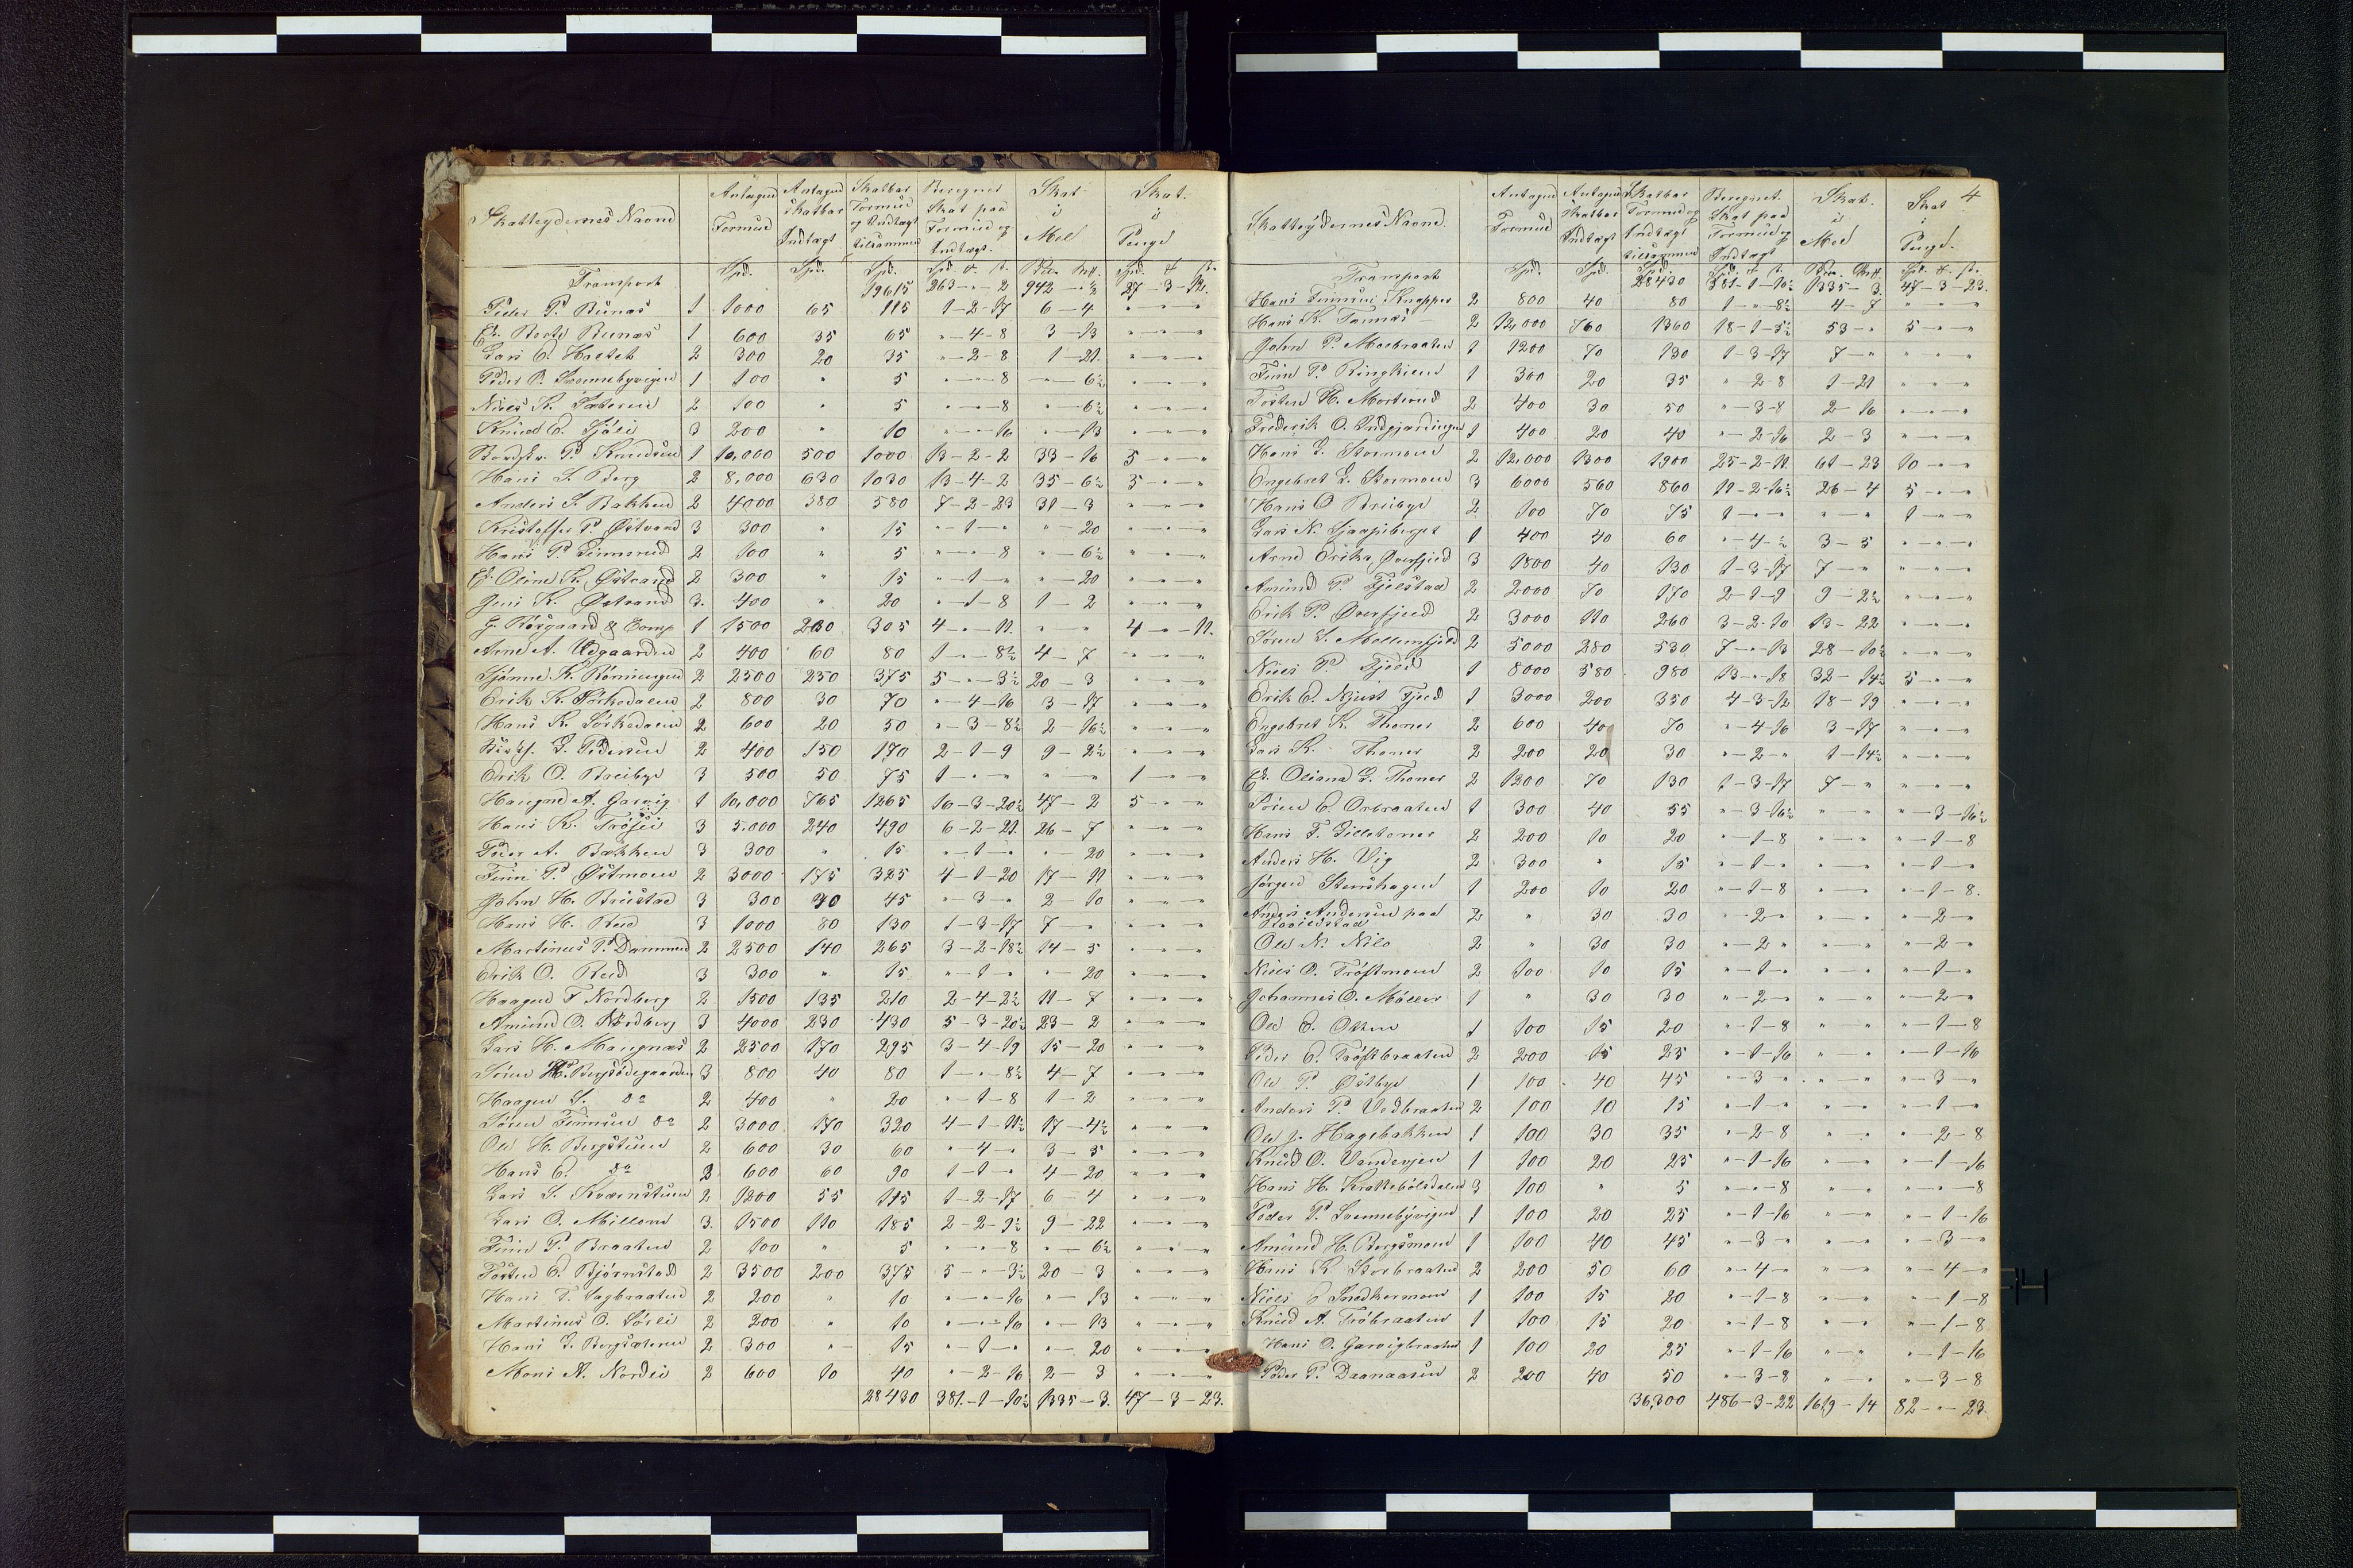 Skatteydernes Navne | Antagen Formue | Antagen skatbar Indtægt | Skatbar Formue og Indtægt tilsammen | Beregnet Skat paa Formue og Indtægt. | Skat i Mel | Skat. i Penge
Transport | Spd. | Spd. | Spd. 19615 | Spd. ₰. ß. 263 - " - 2 | 942 - " ½ | Spd. ₰ ß. 27 - 3 - 12.
Peder P. Bunæs 1 1000 65 115 1-2-17 6-4 " " "
E. Berthe Bunæs 1 600 35 65 "-4-8 3-13 " " "
Lars E. Holtet 2 300 20 35 "-2-8 1-21. " " "
Peder P. Svennebyvigen 1 100 " 5 "-"-8 "-6½ " " "
Niels K. Sæteren 2 100 " 5 "-"-8 "-6½ " " "
Knud E. Sjøli 3 200 " 10 "-"-16 "-13 " " "
P. Knudsen 1 10,000 500 1000 13-2-2 33-16 5 " "
Hans S. Berg 2 8,000 630 1030 13-4-2 35-6½ 5 " "
Anders S. Bakken 2 4000 380 580 7-2-23 31-3 " " "
Kristoffer P. Østvand 3 300 " 15 "-1-" " 20 " " "
Hans P. Finnerud 2 100 " 5 "-"-8 "-6½ " " "
E. Oline K. Østvand 2 300 " 15 "-1-" "-20 " " "
Jens K. Østvand 3. 400 " 20 "-1-8 1-2 " " "
G. Kiøsgaard & Comp 1 1500 230 305 4-"-11. " " 4-"-11.
Arne A. Ødegaarden 2 400 60 80 1-"-8½ 4-7 " " "
Sjønne K. Rønningen 2 2500 250 375 5-"-3½ 20-3 " " "
Erik K. Sørkedalen 2 800 30 70 "-4-16 3-17 " " "
Hans K. Sørkedalen 2 600 20 50 "-3-8½ 2-16½ " " "
G. Pedersen 2 400 150 170 2-1-9 9-2½ " " "
Erik O. Breibye 3 500 50 75 1-"-" " " 1-"-"
Haagne A. Garvig 1 10,000 765 1265 16-3-20½ 47-2 5-"-"
Hans K. Frøslie 3 5.000 240 490 6-2-21. 26-7 " " "
Peder A. Bækken 3 300 " 15 "-1-" 20 " " "
Finn P. Østmoen 2 3000 175 325 4-1-20 17-11 " " "
John H. Breistad 3 300 30 45 "-3-" 2-10 " " "
Hans H. Rud 3 1000 80 130 1-3-17 7-" " " "
Martinus P. Dammen 2 2500 140 265 3-2-18½ 14-5 " " "
Erik O. Rud 3 300 " 15 "-1-" "-20 " " "
Haagen F. Nordberg 2 1500 135 210 2-4-2½ 11-7 " " "
Amund O. Nordberg 3 4000 230 430 5-3-20½ 23-2 " " "
Lars H. Maugnæs 2 2500 170 295 3-4-19 15-20 " " "
Søren H. Bergsødegaarden 3 800 40 80 1-"-8½ 4-7 " " "
Haagen S. do 2 400 " 20 "-1-8 1-2 " " "
Søren Finnsen do 2 3000 170 320 4-1-11½ 17-4½ " " "
Ole H. Bergstuen 2 600 30 60 "-4-" 3-5 " " "
Hans E. do 2 600 60 90 1-1-" 4-20 " " "
Lars S. Kværnstuen 2 1200 55 115 1-2-17 6-4 " " "
Lars O. Millom 3. 1500 110 185 2-2-9½ 9-22 " " "
Finn P. Braaten 2 100 " 5 "-"-8 "-6½ " " "
Tosten E. Bjørnstad 2 3500 200 375 5-"-3½ 20-3 " " "
Hans T. Sagbraaten 2 200 " 10 "-"-16 "-13 " " "
Martinus O. Sørli 2 200 " 10 "-"-16 "-13 " " "
Hans G. Bergsæteren 2 300 " 15 "-1-" "-20 " " "
Mons A. Nordli 2 600 10 40 "-2-16 2-3 " " "
28430 381.-1-10½ 1335-3. 47-3-23.
4
Skatteydernes Navne. | Antagen Formue | Antagen skatbar Indtægt | Skatbar Formue og Indtægt tilsammen | Beregnet Skat paa Formue og Indtægt | Skat. i Mel | Skat i Penge.
Transport | Spd. | Spd. | Spd. 28430 | 381-1-10½ | 1335-3. | 47-3-23.
Hans Finnsen Knapper 2 800 40 80 1-"-8½ 4-7 " " "
Hans K. Tannæs 2 12,000 760 1360 18-1-5½ 53-" 5-"-"
John P. Moebraaten 1 1200 70 130 1-3-17 7-" " " "
Finn P. Ringlien 1 300 20 35 "-2-8 1-21 " " "
Tosten H. Morterud 2 400 30 50 "-3-8 2-16 " " "
Frederik O. Indgjærdingen 1 400 20 40 "-2-16 2-3 " " "
Hans G. Stormoen 2 12,000 1300 1900 25-2-11. 61-23 10-"-"
Engebret G. Stormoen 3 6000 560 860 11-2-16½ 26-4 5-"-"
Hans O Breibye 2 100 70 75 1-"-" "-" 1-"-"
Lars N. Sjaapsberget 1 400 40 60 "-4-½ 3-5 " " "
Arne Eriks. Oversjød 3 1800 40 130 1-3-17 7-" " " "
Amund P. Fjelstad 2 2000 70 170 2-1-9 9-2½ " " "
Erik P. Oversjøed 2 3000 110 260 3-2-10 13-22 " " "
Søren S. Mellemfjeld 2 5000 280 530 7-"-13 28-10½ " " "
Niels P. Fjeld 1 8000 580 980 13-"-18 32-14½ 5-"-"
Erik E. Fjeld 1 3000 200 350 4-3-12 18-19 " " "
Engebret K. Thones 2 600 40 70 "-4-16 3-17 " " "
Lars K. Thones 2 200 20 30 "-2-" 1-14½ " " "
E. Oliana G. Thones 2 1200 70 130 1-3-17 7-" " " "
Søren E. Orbraaten 1 300 40 55 "-3-16½ "-" "-3-16½
Hans F. Lilletones 2 200 10 20 "-1-8 "-" "-1-8
Anders H. Vig 2 300 " 15 "-1-" "-" "-1-"
Jørgen Stenshagen 1 200 10 20 "-1-8 "-" "-1-8.
Anders Andersen paa 2 " 30 30 "-2-" "-" "-2-"
Ole N. Nilo 2 " 30 30 "-2-" "-" "-2-"
Niels O. Frøstmoen 2 100 10 15 "-1-" "-" "-1-"
Johannes O. Møller 1 " 30 30 "-2-" "-" "-2-"
Ole E. Okken 1 100 15 20 "-1-8 "-" "-1-8
Peder E. Frøstbraaten 2 200 15 25 "-1-16 "-" "-1-16
Ole P. Østbye 1 100 40 45 "-3-" "-" "-3-"
Anders P. Vedbraaten 2 100 10 15 "-1-" "-" "-1-"
Ole J. Hagebakken 1 100 30 35 "-2-8 "-" "-2-8
Knud O. Vandesjøen 1 100 20 25 "-1-16 "-" "-1-16
Hans H. Krakebølsdalen 3 100 " 5 "-"-8 "-" "-"-8
Peder P. Svennebyvigen 1 100 20 25 "-1-16 "-" "-1-16
Amund H. Bergsmoen 1 100 40 45 "-3-" "-" "-3-"
Hans K. Storbraaten 2 200 50 60 "-4-" "-" "-4-"
Niels E Snedkermoen 1 100 15 20 "-1-8 "-" "-1-8
Knud A. Frøbraaten 1 100 15 20 "-1-8 "-" "-1-8
Hans O. Garvigbraaten 1 100 20 25 "-1-16 "-" "-1-16
Peder P. Daanaasen 2 200 40 50 "-3-8 "-" "-3-8
36,300 486-3-22 1619-14 82-"-23.